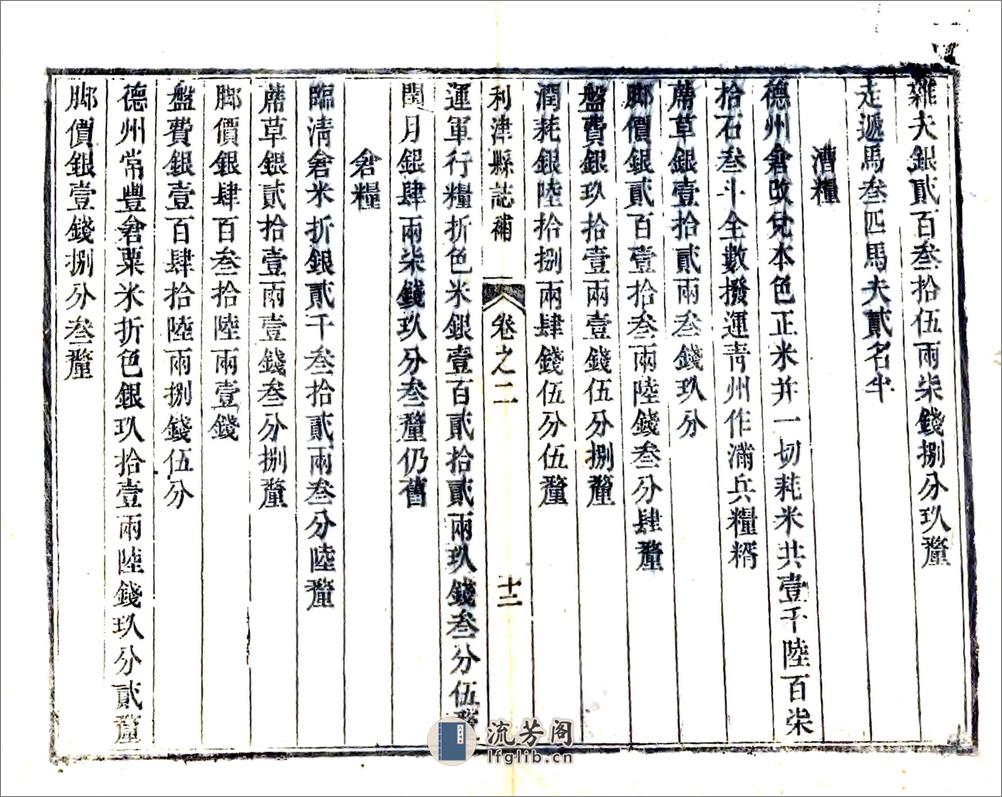 雜夫銀貳百叁拾伍兩柒錢捌分玖釐
走遞馬叁匹馬夫貳名半
漕糧
德州倉改兌本色正米并一切耗米共壹千陸百柒
拾石叁斗全數撥運靑州作滿兵糧糈
蓆草銀壹拾貳兩叁錢玖分
脚價銀貳百壹拾叁兩陸錢叁分肆釐
盤費銀玖拾壹兩壹錢伍分捌釐
潤耗銀陸拾捌兩肆錢伍分伍釐
利津縣誌補 卷之二 十二
運軍行糧折色米銀壹百貳拾貳兩玖錢叁分伍釐
閏月銀肆兩柒錢玖分叁釐仍舊
倉糧
臨淸倉米折銀貳千叁拾貳兩叁分陸釐
蓆草銀貳拾壹兩壹錢叁分捌釐
脚價銀肆百叁拾陸兩壹錢
盤費銀壹百肆拾陸兩捌錢伍分
德州常豐倉粟米折色銀玖拾壹兩陸錢玖分貳釐
脚價銀壹錢捌分叁釐
流芳阁
lfglib.cn